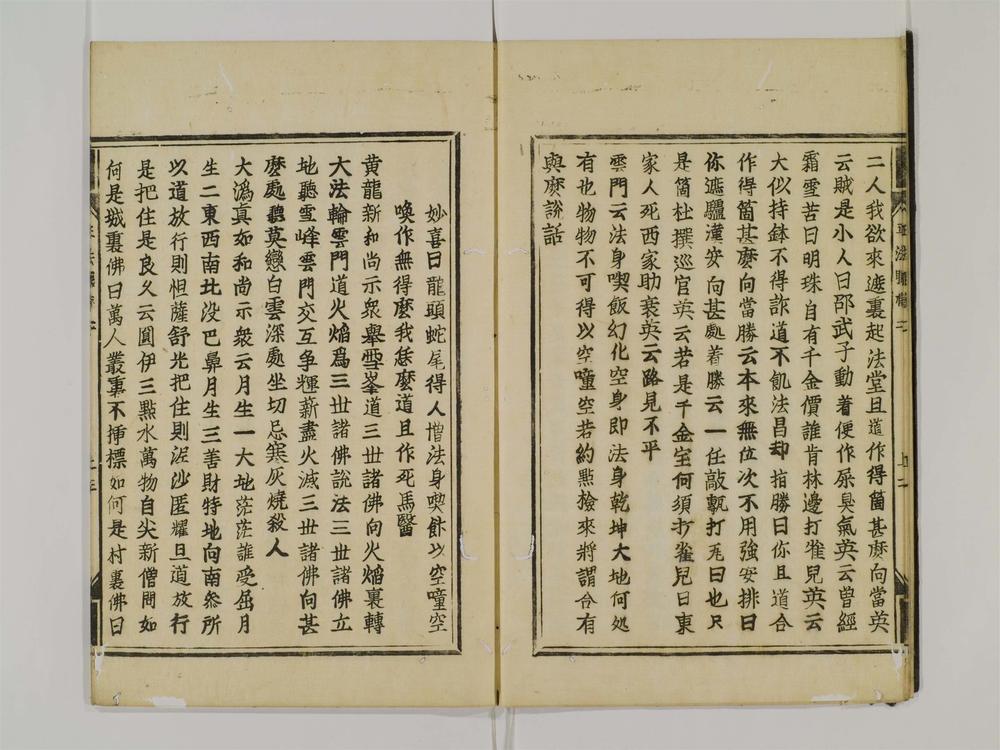 二人我欲來遮裏起法堂且道作得箇甚麽向當英
云賊是小人曰邵武子動着便作屎臭氣英云曾經
霜雪苦曰明珠自有千金價誰肯林邊打雀兒英云
大似持鉢不得詐道不飢法昌却指勝曰你且道合
作得箇甚麽向當勝云本來無位次不用強安排曰
你遮驢漢安向甚處着勝云一任敲甎打瓦曰也只
是箇杜撰巡官英云若是千金寶何須打雀兒曰東
家人死西家助哀英云路見不平
雲門云法身喫飯幻化空身即法身乾坤大地何処
有也物物不可得以空噇空若約點檢來將謂合有
與麽說話
妙喜曰龍頭蛇尾得人憎法身喫飰以空噇空
喚作無得麽我恁麽道且作死馬醫
黄龍新和尚示衆舉雪峯道三世諸佛向火焰裏轉
大法輪雲門道火焰爲三世諸佛說法三世諸佛立
地聽雪峰雲門交互争輝薪盡火滅三世諸佛向甚
麽處聽莫戀白雲深處坐切忌寒灰燒殺人
大潙真如和尚示衆云月生一大地茫茫誰受屈月
生二東西南北没巴鼻月生三善財特地向南叅所
以道放行則怛薩舒光把住則泥沙匿耀且道放行
是把住是良久云圓伊三點水萬物自尖新僧問如
何是城裏佛曰萬人叢裏不揷標如何是村裏佛曰